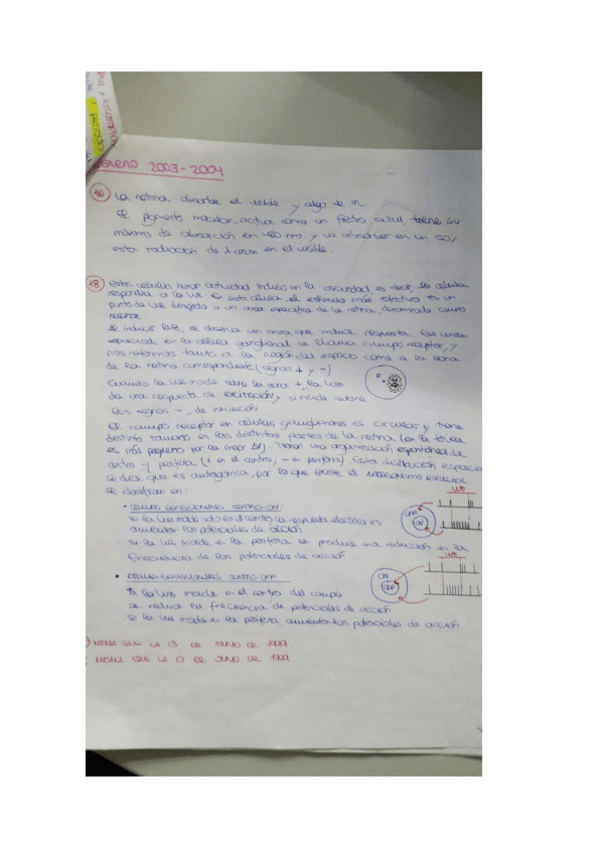 2003-2004
1a) La retina absorbe el visible y algo de IR.
El pigmento macular, actúa como un filtro azul tiene su
máximo de absorción en 460 nm y va absorber en un 50%
esta radiación de λ corta en el visible.
1B) Estas células tienen actividad incluso en la oscuridad, es decir, la célula
respondía a la luz. En esta célula, el estímulo más efectivo es un
punto de luz dirigido a un área específica de la retina, denominado campo
receptor.
Al inducir luz, se observa un área que induce respuesta. Ese
espacial en la célula ganglional se llama campo receptor, y
nos referimos tanto a la región del espacio como a la zona
de la retina correspondiente (signos + y -)
Cuando la luz incide sobre la zona +, la luz
da una respuesta de excitación, y si incide sobre
los signos -, de inhibición
El campo receptor en células ganglionares es circular y tiene
distinto tamaño en las distintas partes de la retina (en la fóvea
es más pequeño por la mejor AV). Tienen una organización espontánea de
centro y periferia (+ en el centro, - en periferia). Esta distribución espacial
se dice que es antagónica, por lo que existe el
se clasifican en:
• CÉLULAS GANGLIONARES CENTRO-ON:
si la luz incide sólo en el centro la respuesta eléctrica es
aumentar los potenciales de acción
si la luz incide en la periferia se produce una reducción en la
frecuencia de los potenciales de acción
LUZ
OFF
ON
• CÉLULAS GANGLIONARES CENTRO-OFF
Si la luz incide en el centro del campo
se reduce la frecuencia de potenciales de acción
si la luz incide en la periferia, aumentan los potenciales de acción
LUZ
ON
OFF
IGUAL QUE LA 13 DE JUNIO DE 1999
IGUAL QUE LA 10 DE JUNIO DE 1999.